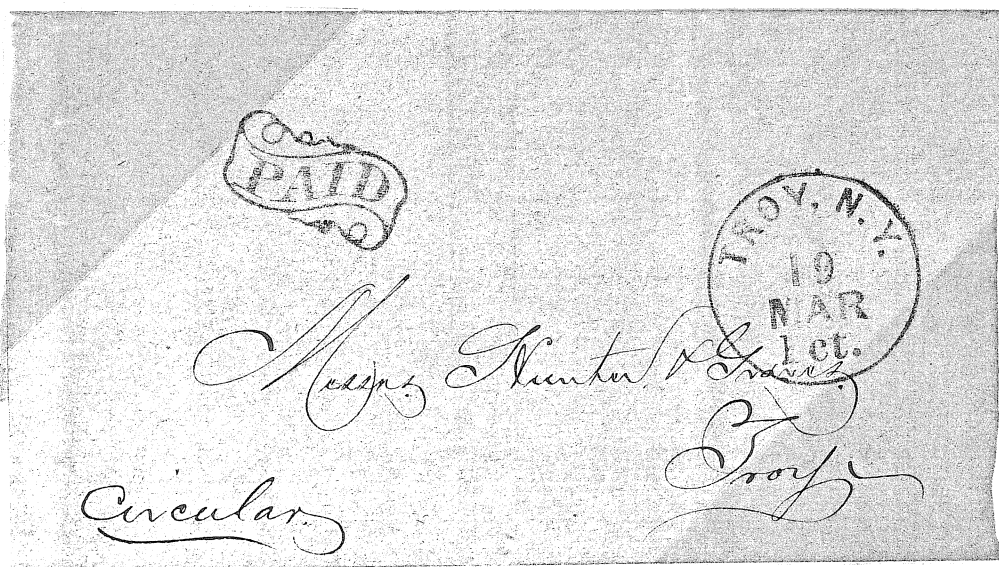 PAID
TROY, N.Y.
19
MAR
1 ct.
Messrs. Hunter & Graves.
Troy
Circular.